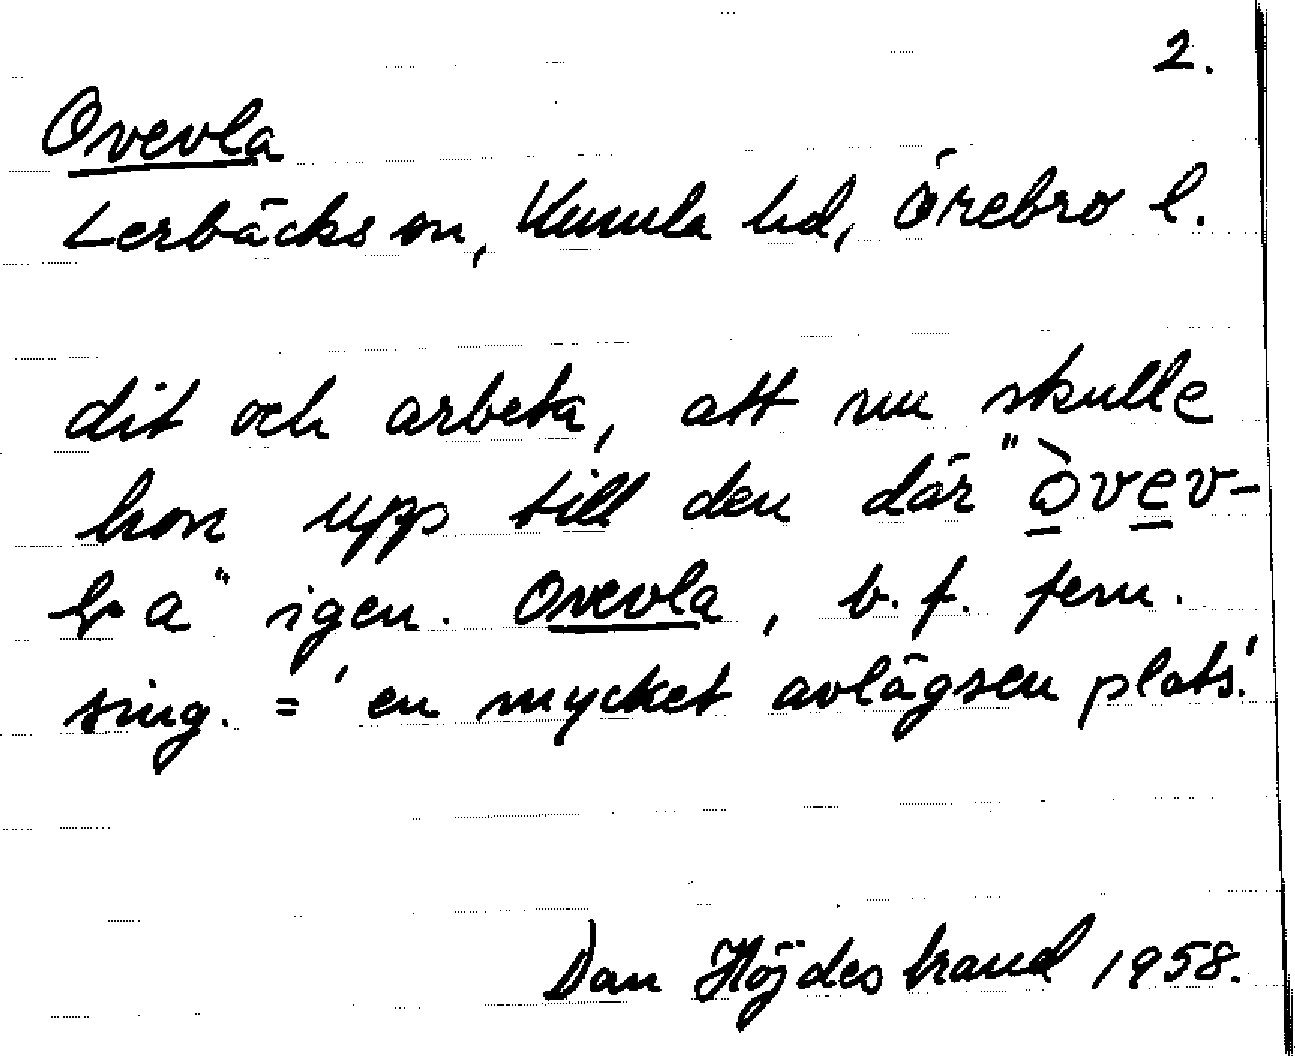 2.
Ovevla
Lerbäcks sn, Kumla hd, Örebro l.
dit och arbeta, att nu skulle
hon upp till den där "òvev-
la" igen. Ovevla, b. f. fem.
sing. = 'en mycket avlägsen plats'.
Dan Höjdestrand 1958.